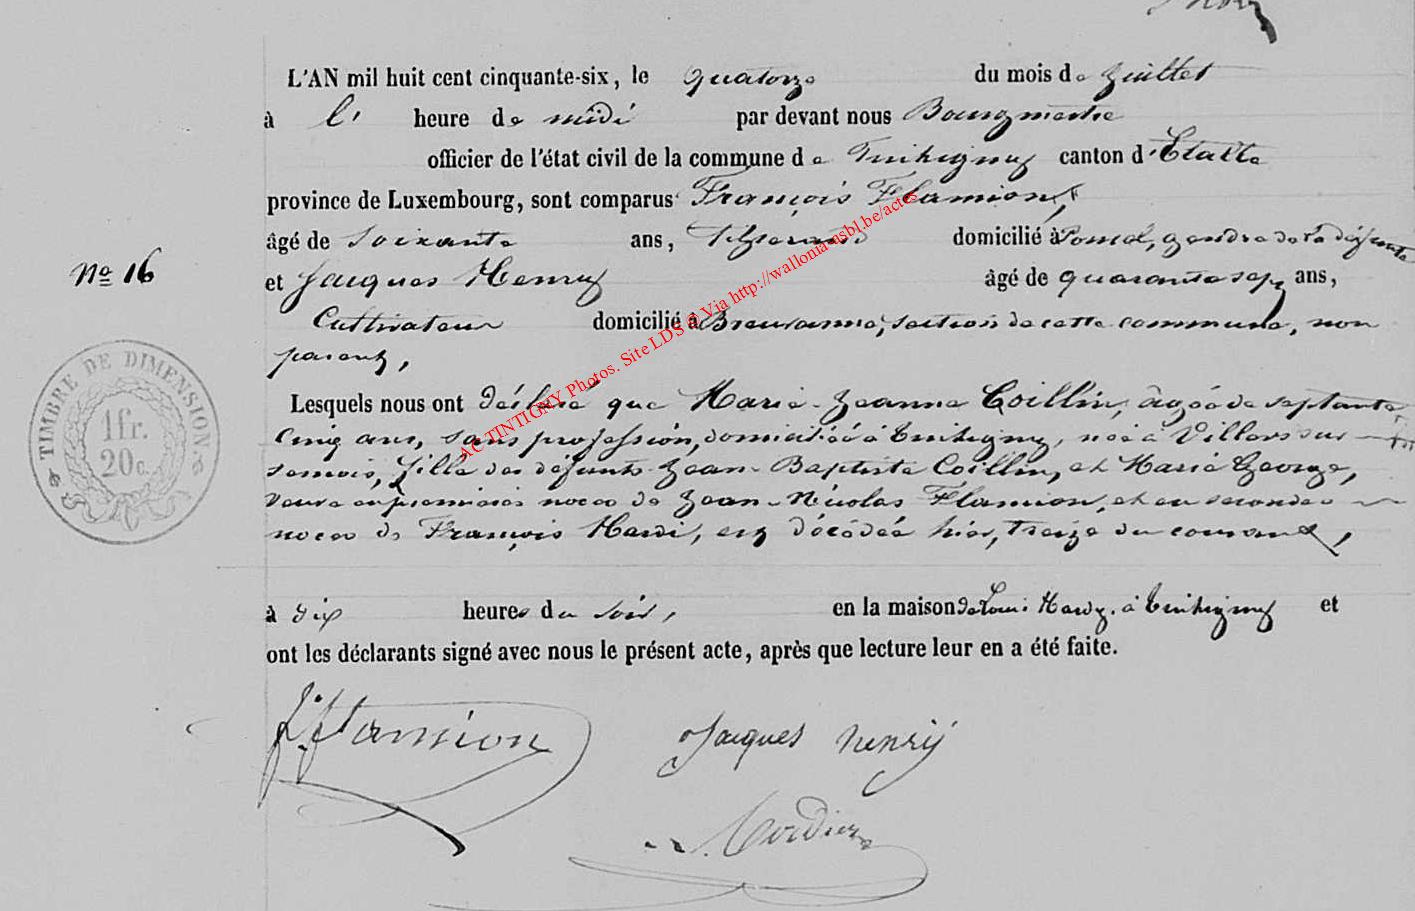 L'AN mil huit cent cinquante-six, le quatorze du mois de Juillet
à l' heure de midi par devant nous Bourgmestre
officier de l'état civil de la commune de Tintigny canton d'Etalle
province de Luxembourg, sont comparus François Flamion,
âgé de soixante ans, domicilié à gendre de la défunte
N° 16
et Jacques Henry âgé de quarante sept ans,
Cultivateur domicilié à Breuvanne, section de cette commune, non
parent,
Lesquels nous ont déclaré que Marie-Jeanne Goillin, âgée de septante
cinq ans, sans profession, domiciliée à Tintigny, née à Villers sur
semois, fille des défunts Jean-Baptiste Coillin, et Marie George,
veuve en premières noces de Jean-Nicolas Flamion, et en secondes
noces de François Hardi, est décédée hier, treize du courant,
à dix heures du soir, en la maison de Louis Hardy à Tintigny et
ont les déclarants signé avec nous le présent acte, après que lecture leur en a été faite.
TIMBRE DE DIMENSION.
1 fr.
20 c.
AC TINTIGNY Photos. Site LDS © Via http://wallonia-asbl.be/actes
f. flamion Jacques henrÿ